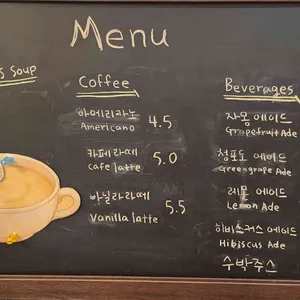 Menu
s Soup
Coffee
아메리카노 4.5
Americano
카페라떼 5.0
cafe latte
바닐라라떼 5.5
Vanilla latte
Beverages
자몽 에이드
Grapefruit Ade
청포도 에이드
Greengrape Ade
레몬 에이드
Lemon Ade
히비스커스 에이드
Hibiscus Ade
수박주스